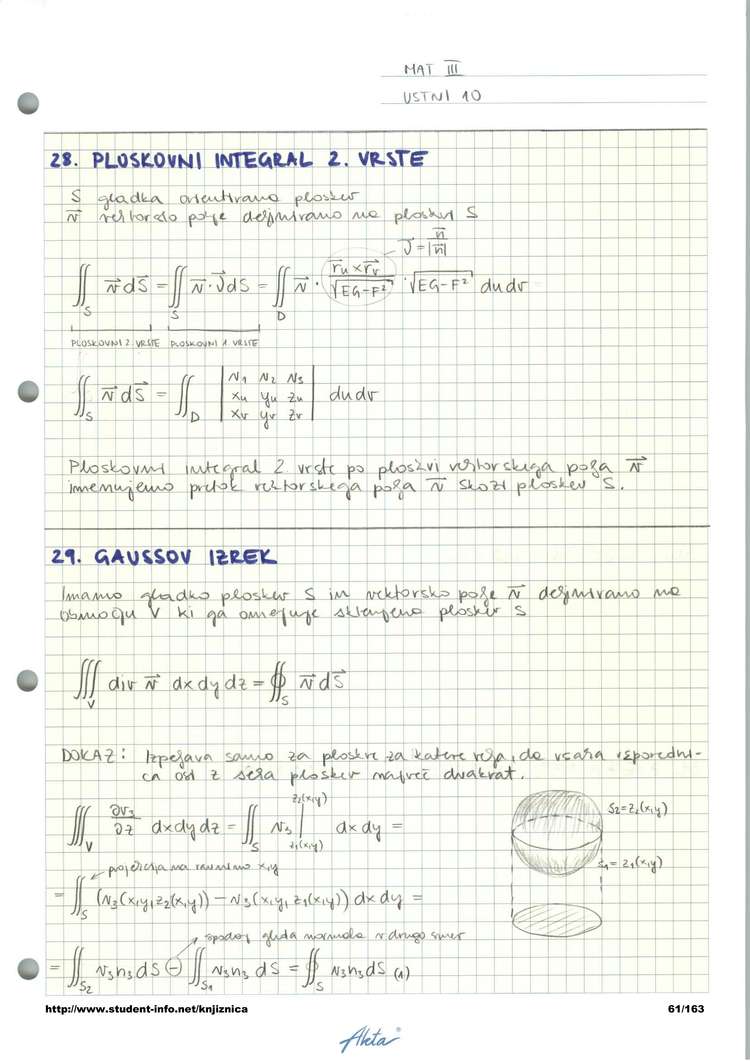 MAT III
USTNI 10
28. PLOSKOVNI INTEGRAL 2. VRSTE
S gladka orientirana ploskev
v⃗ vektorsko polje definirano na ploskvi S
ν⃗ = n⃗/|n⃗|
∬_S v⃗ dS⃗ = ∬_S v⃗ · ν⃗ dS = ∬_D v⃗ · (r⃗u × r⃗v)/√(EG-F²) · √(EG-F²) du dv
PLOSKOVNI 2. VRSTE PLOSKOVNI 1. VRSTE
∬_S v⃗ dS⃗ = ∬_D | v1 v2 v3 ; xu yu zu ; xv yv zv | du dv
Ploskovni integral 2. vrste po ploskvi vektorskega polja v⃗
imenujemo pretok vektorskega polja v⃗ skozi ploskev S.
29. GAUSSOV IZREK
Imamo gladko ploskev S in vektorsko polje v⃗ definirano na
območju V ki ga omejuje sklenjena ploskev S
∭_V div v⃗ dx dy dz = ∯_S v⃗ dS⃗
DOKAZ: Izpeljava samo za ploskve za katere velja, da vsaka vzporedni-
ca osi z seka ploskev največ dvakrat.
∭_V ∂v3/∂z dx dy dz = ∬_S v3 |_{z1(x,y)}^{z2(x,y)} dx dy =
S2=z2(x,y)
S1=z1(x,y)
projekcija na ravnino x,y
= ∬_S (v3(x,y,z2(x,y)) - v3(x,y,z1(x,y)) dx dy =
spodaj gleda normala v drugo smer
= ∬_S2 v3n3 dS ⊖ ∬_S1 v3n3 dS = ∯_S v3n3 dS (1)
http://www.student-info.net/knjiznica 61/163
Akta